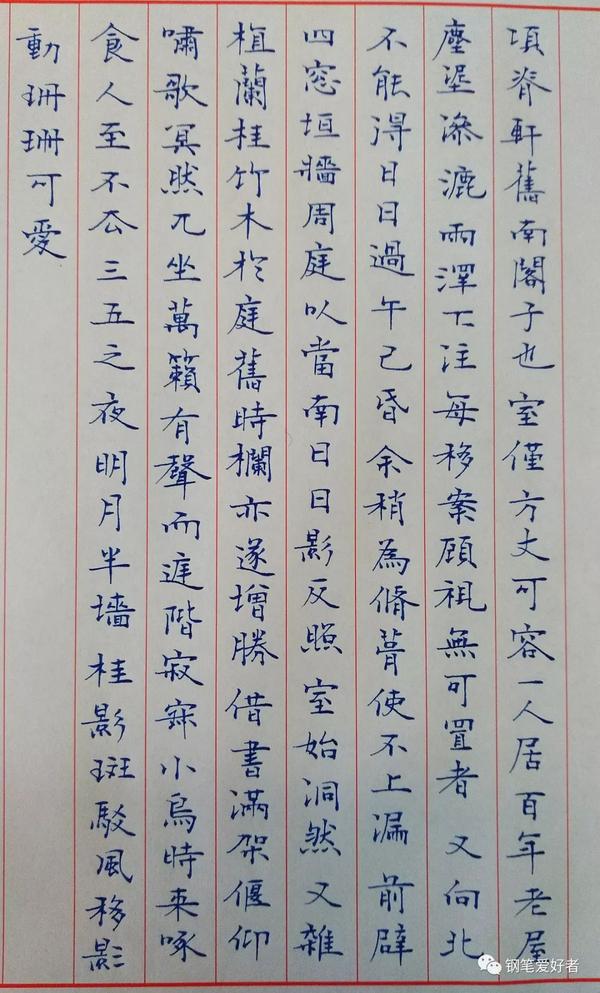 項脊軒舊南閣子也室僅方丈可容一人居百年老屋
塵埿滲漉雨澤下注每移案顧視無可置者又向北
不能得日日過午已昏余稍為脩葺使不上漏前辟
四窓垣牆周庭以當南日日影反照室始洞然又雜
植蘭桂竹木於庭舊時欄亦遂增勝借書滿架偃仰
嘯歌冥然兀坐萬籟有聲而庭階寂寂小鳥時來啄
食人至不去三五之夜明月半墻桂影斑駁風移影
動珊珊可愛
钢笔爱好者